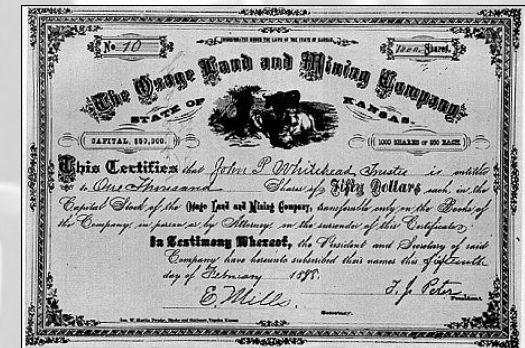 No 10
INCORPORATED UNDER THE LAWS OF THE STATE OF KANSAS.
1000 Shares.
The Osage Land and Mining Company
STATE OF KANSAS.
CAPITAL, $50,000.
1000 SHARES OF $50 EACH
This Certifies that John P. Whitehead, Trustee is entitled
to One Thousand Shares of Fifty Dollars each, in the
Capital Stock of the Osage Land and Mining Company, transferable only on the Books of
the Company, in person or by Attorney, on the surrender of this Certificate.
In Testimony Whereof, the President and Secretary of said
Company have hereunto subscribed their names this fifteenth
day of February 188
E. Mills.
Secretary.
T. J. Peter
President.
Geo. W. Martin, Printer, Binder and Stationer, Topeka, Kansas.